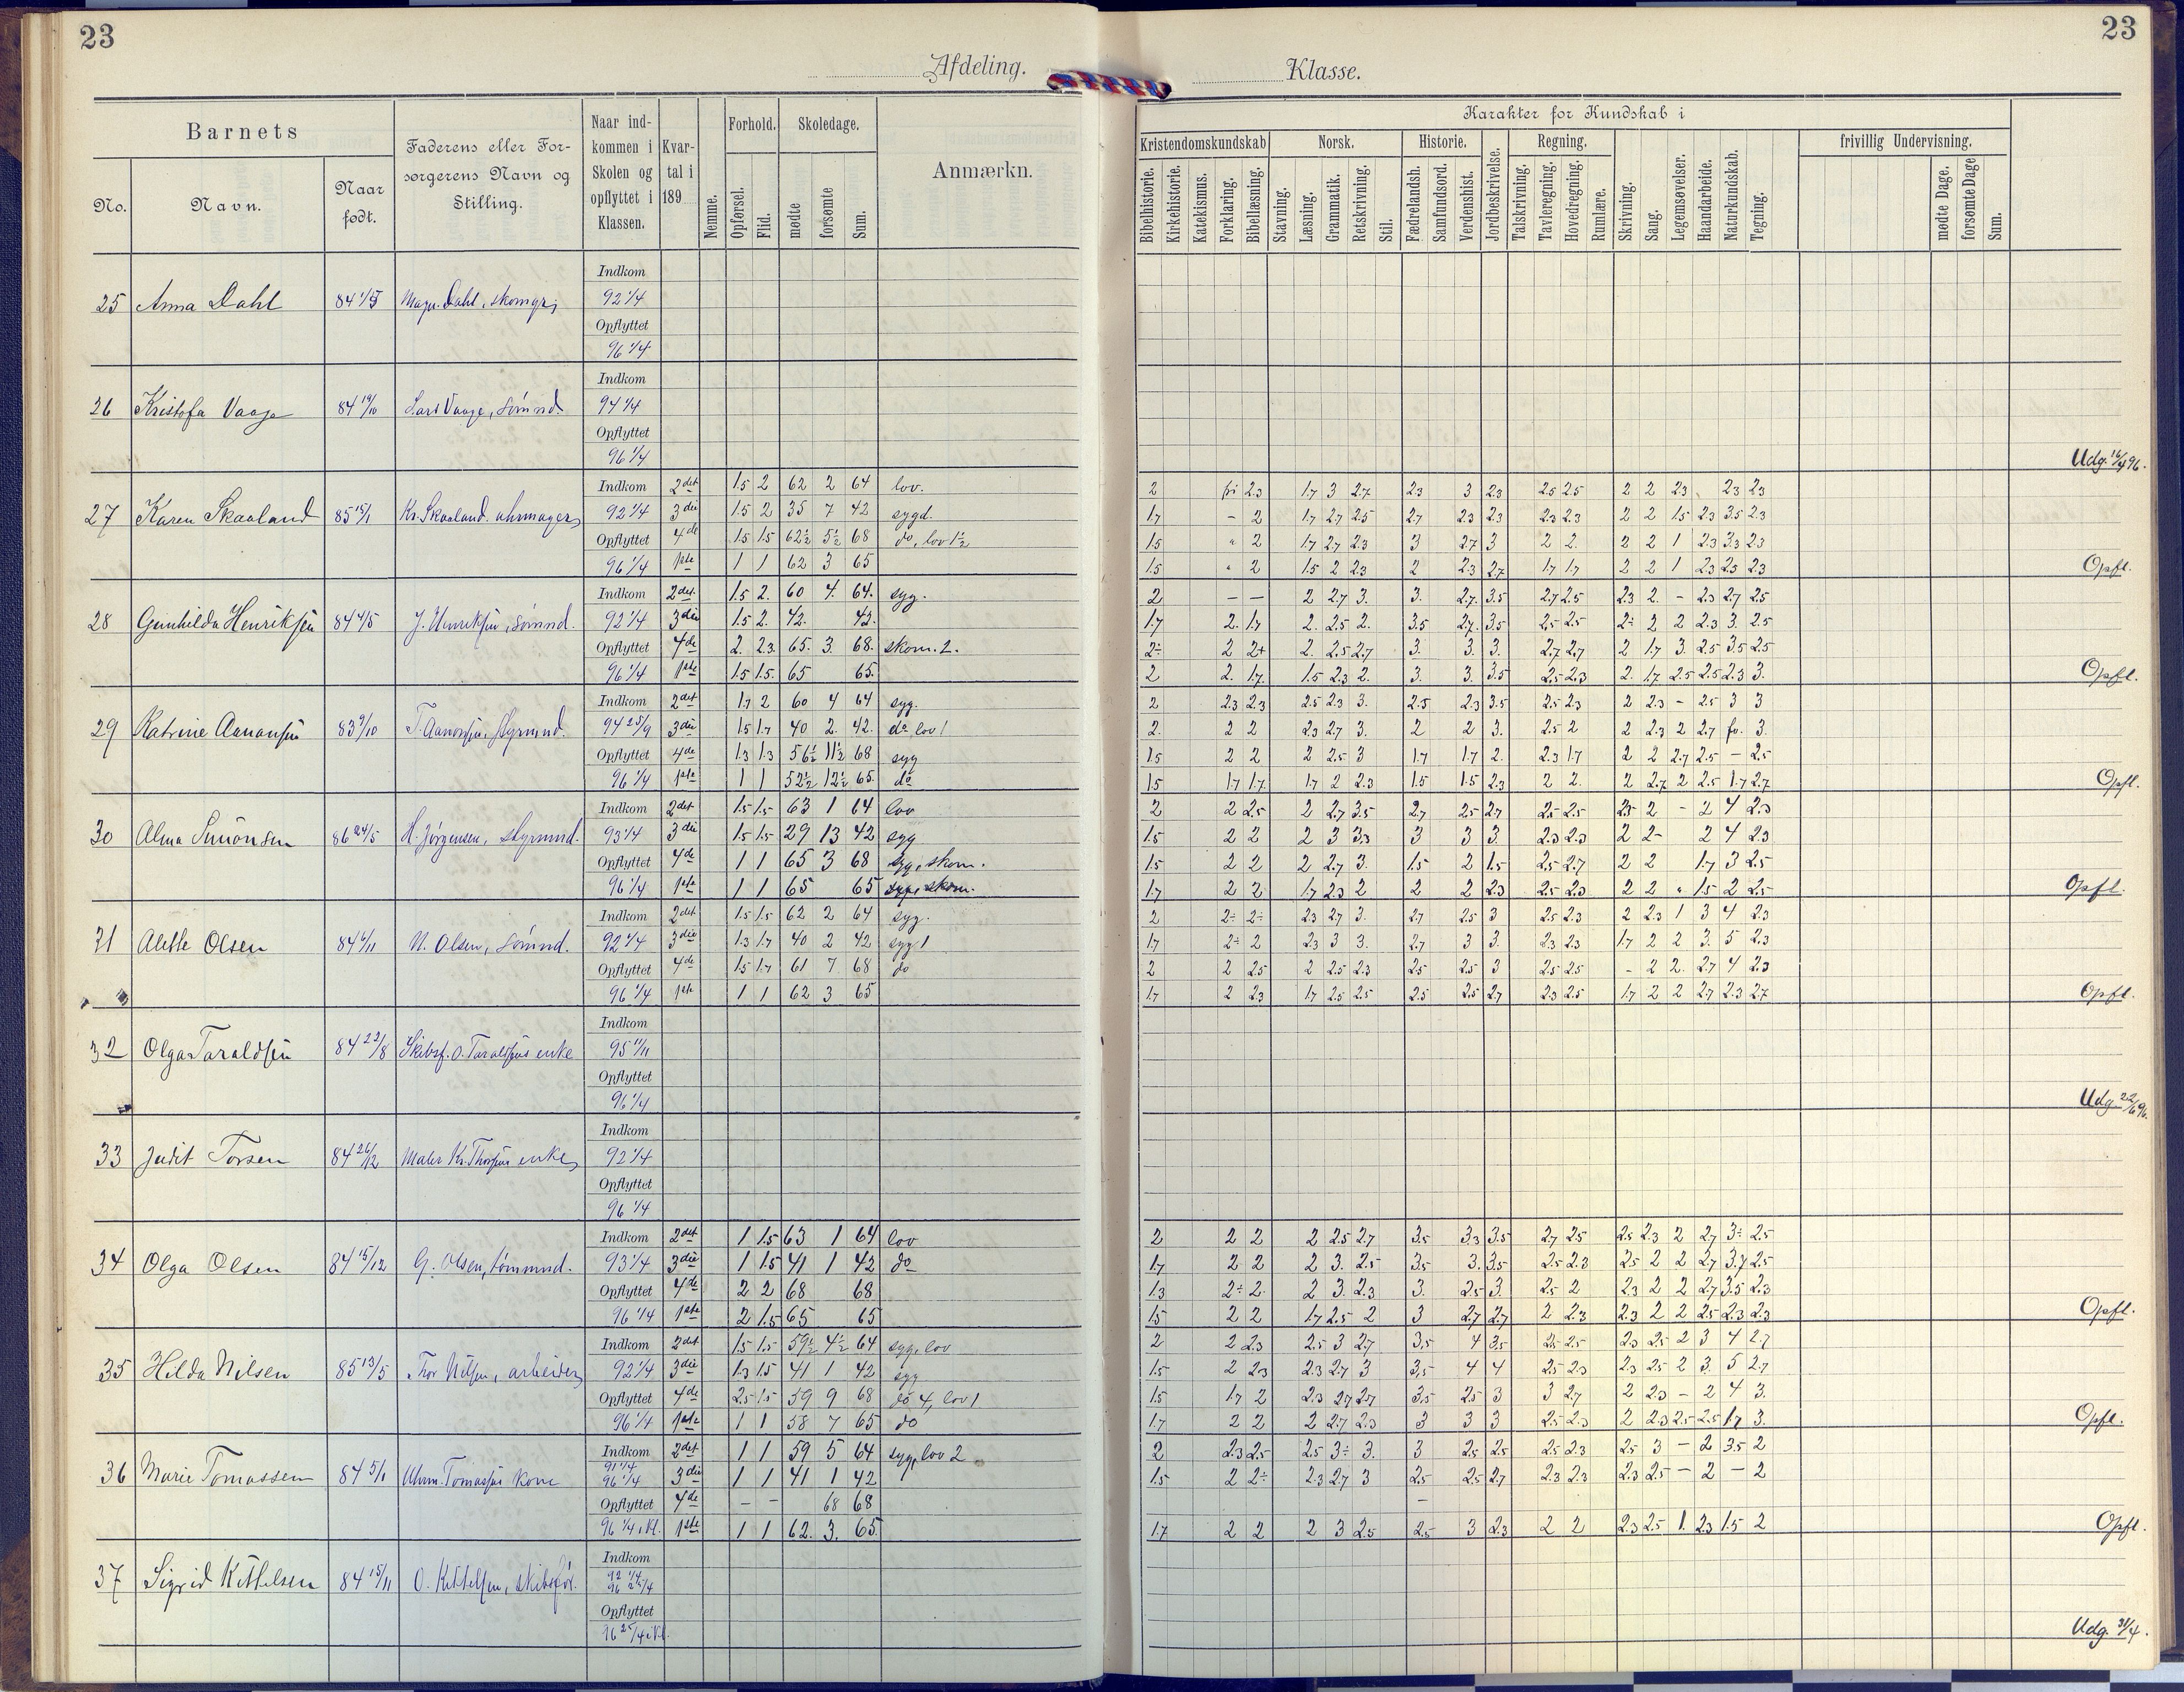 23
23
Afdeling.
Klasse.
Barnets
No.
Navn.
Naar født.
Faderens eller Forsørgerens Navn og Stilling.
Naar indkommen i Skolen og opflyttet i Klassen.
Kvartal i 189
Nemme.
Forhold.
Opførsel.
Flid.
Skoledage.
mødte
forsømte
Sum.
Anmærkn.
Karakter for Kundskab i
Kristendomskundskab
Bibelhistorie.
Kirkehistorie.
Katekismus.
Forklaring.
Bibellæsning.
Norsk.
Stavning.
Læsning.
Grammatik.
Retskrivning.
Stil.
Historie.
Fædrelandsh.
Samfundsord.
Verdenshist.
Jordbeskrivelse.
Regning.
Talskrivning.
Tavleregning.
Hovedregning.
Rumlære.
Skrivning.
Sang.
Legemsøvelser.
Haandarbeide.
Naturkundskab.
Tegning.
frivillig Undervisning.
mødte Dage.
forsømte Dage
Sum.
Indkom
25 Anna Dahl Dahl, 92 1/4
Opflyttet
96 1/4
Indkom
26 Kristofa Vaage 84 19/10 Lars Vaage, sømnd. 94 1/4
Opflyttet
96 1/4 Udg. 16/4 96.
Indkom 2det 1.5 2 62 2 64 lov. 2 fri 2.3 1.7 3 2.7 2.3 3 2.3 2.5 2.5 2 2 2.3 2.3 2.3
27 Karen Skaaland 85 15/1 Kr. Skaaland. uhrmager 92 1/4 3die 1.5 2 35 7 42 sygd. 1.7 – 2 1.7 2.7 2.5 2.7 2.3 2.3 2.3 2.3 2 2 1.5 2.3 3.5 2.3
Opflyttet 4de 1.5 1.5 62½ 5½ 68 do, lov 1½ 1.5 " 2 1.7 2.7 2.3 3 2.7 3 2 2. 2 2 1 2.3 3.3 2.3
96 1/4 1ste 1 1 62 3 65 1.5 " 2 1.5 2 2.3 2 2.3 2.7 1.7 1.7 2 2 1 2.3 2.5 2.3 Opfl.
Indkom 2det 1.5 2. 60 4. 64. syg. 2 – – 2 2.7 3. 3. 2.7. 3.5 2.7 2.5 2.3 2. – 2.3 2.7 2.5
28 Gunhilda Henriksen 84 4/5 J. Henriksen, sømnd. 92 1/4 3die 1.5 2. 42. 42. 1.7 2. 1.7 2. 2.5 2. 3.5 2.7. 3.5 2.5 2.5 2÷ 2 2 2.3 3. 2.5
Opflyttet 4de 2. 2.3. 65. 3. 68. skom. 2. 2÷ 2 2+ 2. 2.5 2.7 3. 3. 3. 2.7 2.7 2 1.7 3. 2.5 3.5 2.5
96 1/4 1ste 1.5 1.5. 65 65. 2 2. 1.7. 1.5 2.3 2. 3. 3. 3.5 2.5 2.3 2. 1.7 2.5 2.5 2.3 3. Opfl.
Indkom 2det 1.7 2 60 4 64 syg. 2 2.3 2.3 2.5 2.3 3. 2.5 2.3 3.5 2.5 2.3 2 2.3 – 2.5 3 3
29 Katrine Aanonsen 83 9/10 T. Aanonsen, styrmnd. 94 25/9 3die 1.5 1.7 40 2. 42. do lov 1 2. 2 2 2.3 2.7 3. 2 2 3. 2.5 2 2 2.3 2 2.7 fr. 3.
Opflyttet 4de 1.3 1.3 56½ 11½ 68 syg 1.5 2 2 2 2.5 3 1.7 1.7 2. 2.3 1.7 2 2 2.7 2.5 – 2.5
96 1/4 1ste 1 1 52½ 12½ 65. do 1.5 1.7 1.7. 1.7 2 2.3 1.5 1.5 2.3 2 2. 2 2.7 2 2.5 1.7 2.7 Opfl.
Indkom 2det 1.5 1.5 63 1 64 lov 2 2 2.5 2 2.7 3.5 2.7 2.5 2.7 2.5 2.5 2.5 2 – 2 4 2.3
30 Alma Simonsen 86 24/5 H. Jørgensen, styrmnd. 93 1/4 3die 1.5 1.5 29 13 42 syg 1.5 2 2 2 3 3.3 3 3 3. 2.3 2.3 2 2– 2 4 2.3
Opflyttet 4de 1 1 65 3 68 syg, skom. 1.5 2 2 2 2.7 3. 1.5 2 1.5 2.5 2.7 2 2 1.7 3 2.5
96 1/4 1ste 1 1 65 65 1.7 2 2 1.7 2.3 2 2 2 2.3 2.5 2.3 2 2 " 1.5 2 2.5 Opfl.
Indkom 2det 1.5 1.5 62 2 64 syg. 2 2÷ 2÷ 2.3 2.7 3. 2.7 2.5 3 2.5 2.3 2 2.3 1 3 4 2.3
31 Alette Olsen 84 6/11 N. Olsen, sømnd. 92 1/4 3die 1.3 1.7 40 2 42 syg 1 1.7 2÷ 2 2.3 3 3. 2.7 3 3. 2.3 2.3 1.7 2 2 3. 5 2.3
Opflyttet 4de 1.5 1.7 61 7 68 do 2 2 2.5 2 2.5 2.3 2.5 2.5 3 2.5 2.5 – 2 2. 2.7 4 2.3
96 1/4 1ste 1 1 62 3 65 1.7 2 2.3 1.7 2.5 2.5 2.5 2.5 2.7 2.3 2.5 1.7 2 2 2.7 2.3 2.7 Opfl.
Indkom
32 Olga Taraldsen 84 22/8 Skibsf. O. Taraldsens enke 95 11/11
Opflyttet
96 1/4 Udg. 22/6 96.
Indkom
33 Judit Torsen 84 26/12 Maler Kr. Thorsens enke 92 1/4
Opflyttet
96 1/4
Indkom 2det 1 1.5 63 1 64 lov 2 2 2 2 2.5 2.7 3.5 3.3 3.5 2.7 2.5 2.5 2.3 2 2.7 3÷ 2.5
34 Olga Olsen 84 15/12 G. Olsen, tømmmd. 93 1/4 3die 1 1.5 41 1 42 do 1.7 2 2 2 3. 2.5 3.5 3. 3.5 2.5 2.3 2.5 2 2 2.7 3.7 2.5
Opflyttet 4de 2 2 68 68 1.3 2÷ 2. 2 3. 2.3 3. 2.5 3. 2.5 2 2.3 2 2 2.7 3.5 2.3
96 1/4 1ste 2 1.5 65 65 1.5 2 2 1.7 2.5 2 3 2.7 2.7 2 2.3 2.3 2 2 2.5 2.3 2.3 Opfl.
Indkom 2det 1.5 1.5 59½ 4½ 64 syg, lov 2 2 2.3 2.5 3 2.7 3.5 4 3.5 2.5 2.5 2.3 2.5 2 3 4 2.7
35 Hilda Nilsen 85 13/5 Thor Nilsen, arbeider 92 1/4 3die 1.3 1.5 41 1 42 syg 1.5 2 2.3 2.3 2.7 3 3.5 4 4 2.5 2.3 2.3 2.5 2 3. 5 2.7
Opflyttet 4de 2.5 1.5 59 9 68 do 4, lov 1 1.5 1.7 2 2.3 2.7 2.7 3.5 2.5 3 3 2.7 2 2.3 – 2 4 3.
96 1/4 1ste 1 1 58 7 65 do 1.7 2 2 2 2.7 2.3 3 3 3 2.5 2.3 2 2.3 2.5 2.5 1.7 3. Opfl.
Indkom 2det 1 1 59 5 64 syg, lov 2 2 2.3 2.5 2.5 3÷ 3. 3 2.5 2.5 2.5 2.3 2.5 3 – 2 3.5 2
91 1/4
36 Marie Tomassen 84 5/1 Uhrm. Tomassens kone 96 1/4 3die 1 1 41 1 42 1.5 2 2÷ 2.3 2.7 3 2.5 2.5 2.7 2.3 2.3 2.3 2.5 – 2 – 2
Opflyttet 4de – – 68 68 –
96 1/4 i Kl. 1ste 1 1 62. 3. 65. 1.7 2 2 2 3 2.5 2.5 3 2.3 2 2 2.3 2.5 1. 2.3 1.5 2 Opfl.
Indkom
92 1/4
37 Sigrid Kittelsen 84 15/11 O. Kittelsen, skibsfør. 96 25/4
Opflyttet
96 25/4 i Kl. Udg.